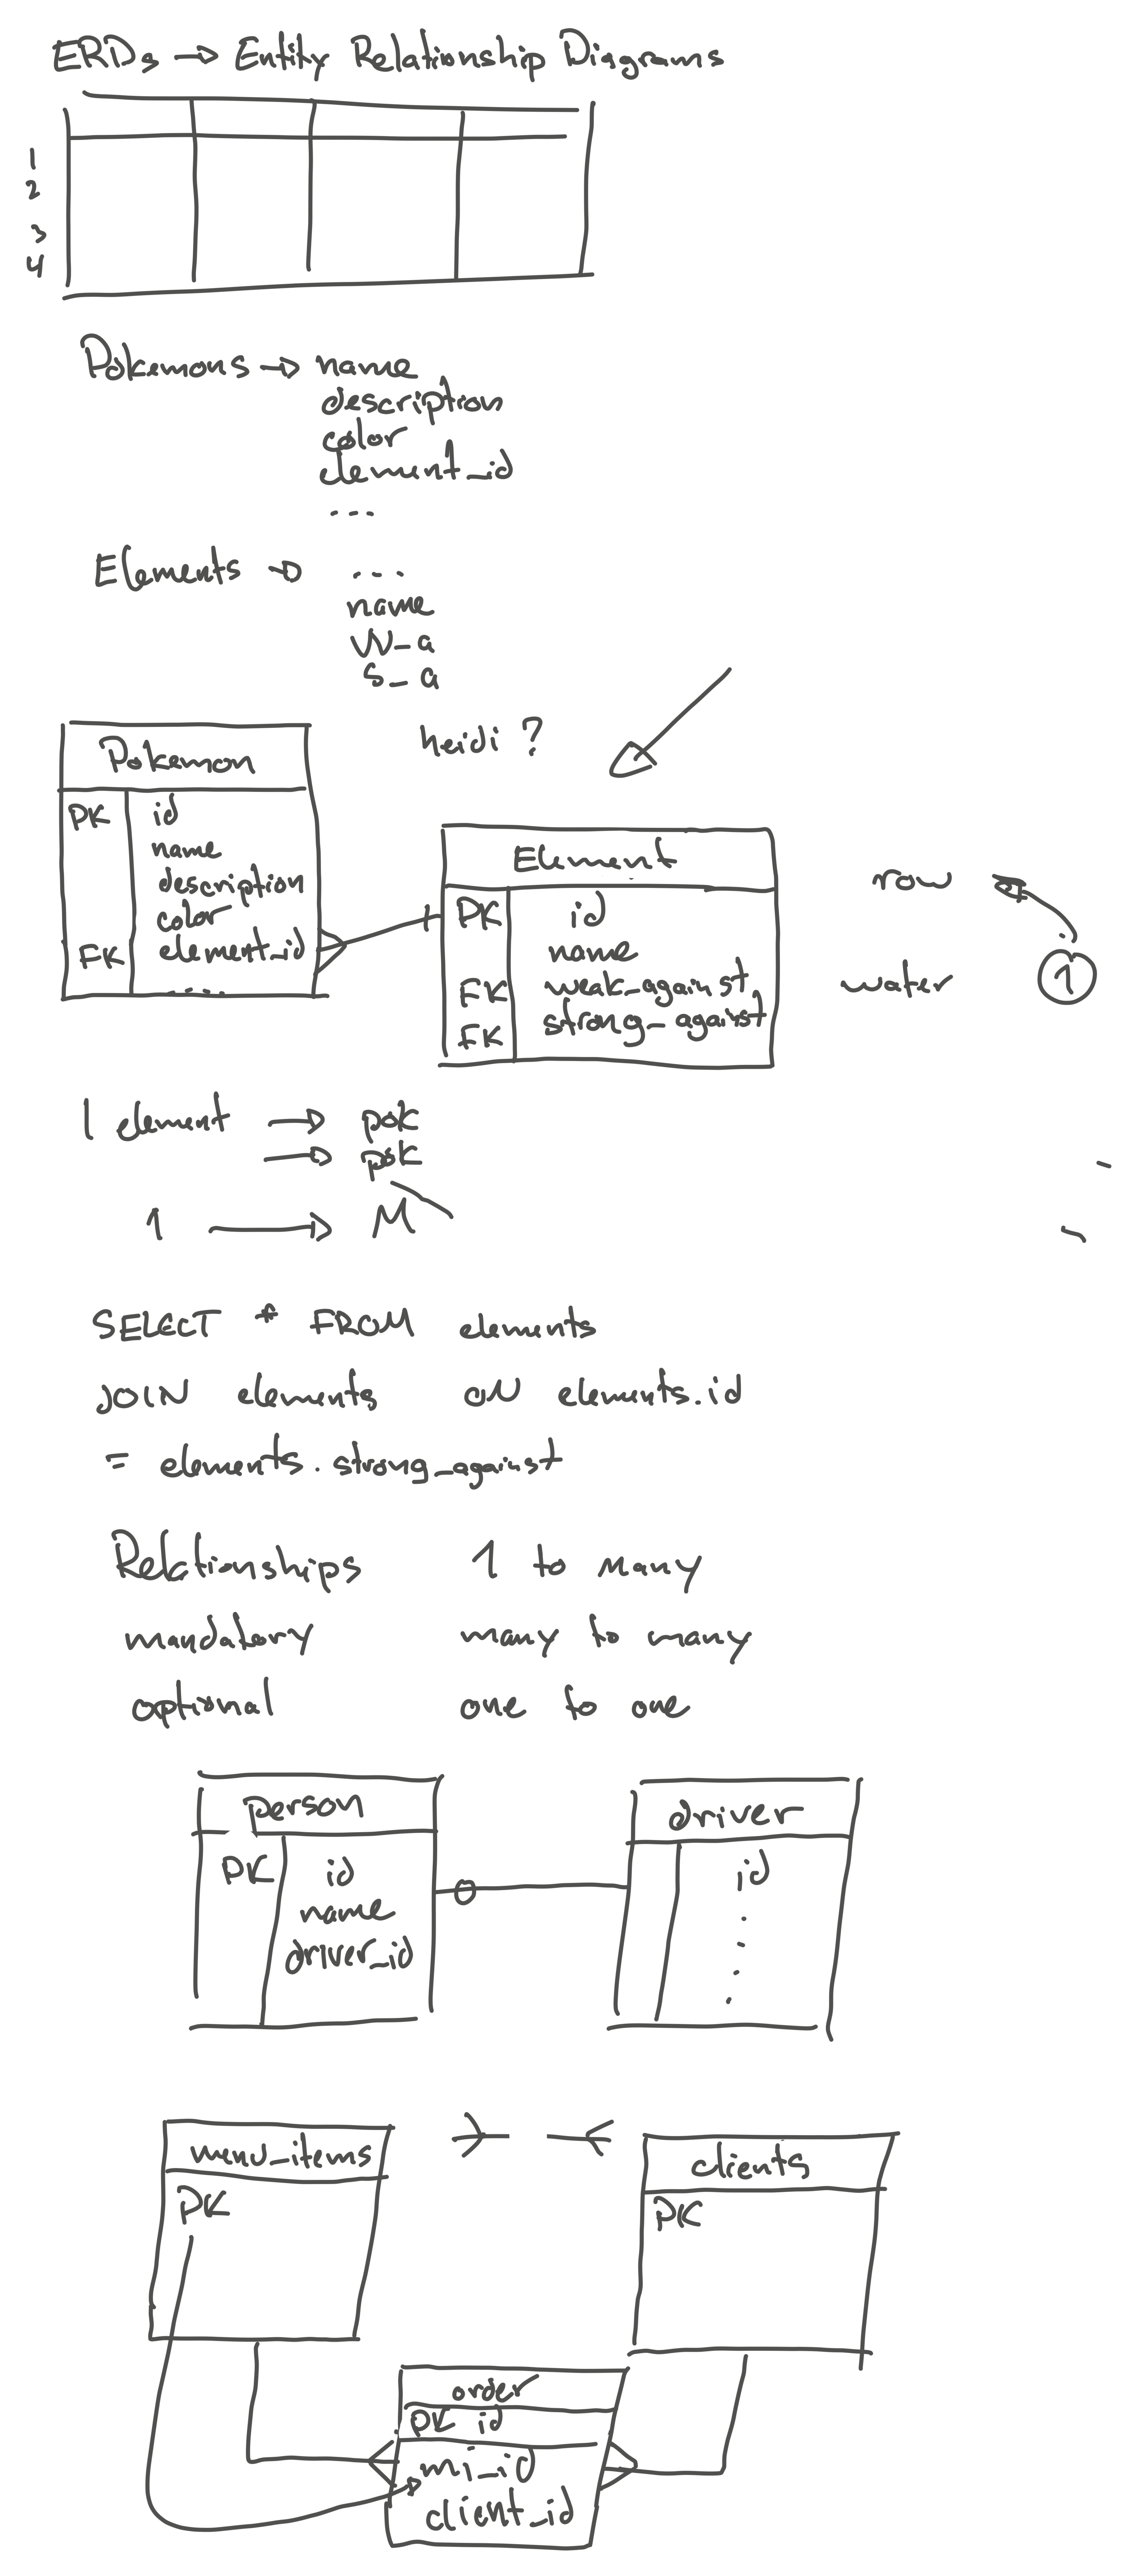 ERDs → Entity Relationship Diagrams
1
2
3
4
Pokemons → name
description
color
element_id
...
Elements → ...
name
W_a
S_a
heidi ?
Pokemon
PK id
name
description
color
FK element_id
.....
Element
PK id
name
FK weak_against
FK strong_against
row
water 1
1 element → pok
→ pok
1 → M
SELECT * FROM elements
JOIN elements ON elements.id
= elements.strong_against
Relationships 1 to many
mandatory many to many
optional one to one
person
PK id
name
driver_id
driver
id
.
.
.
.
menu_items
PK
clients
PK
order
PK id
mi_id
client_id